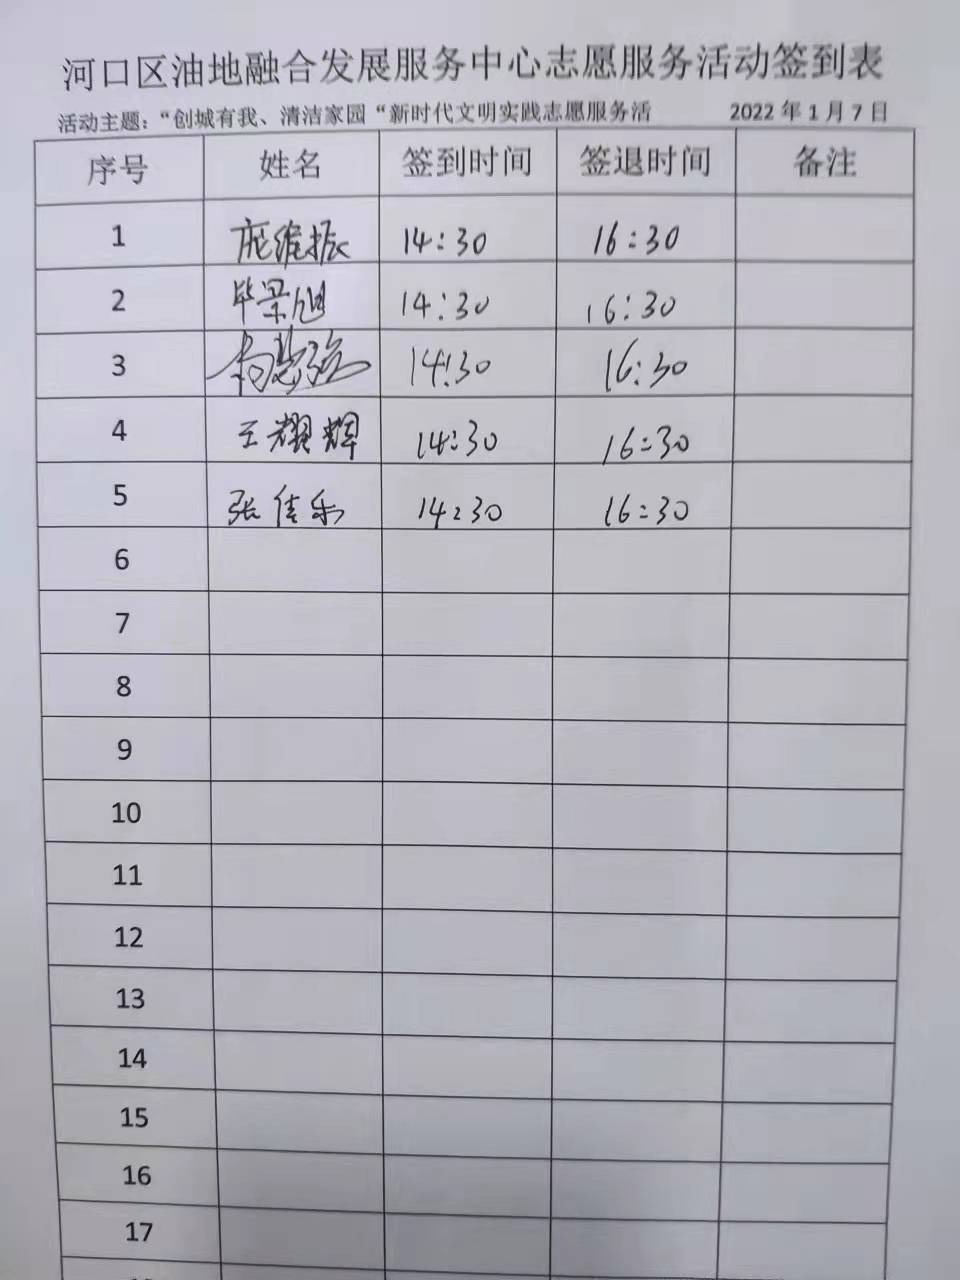 河口区油地融合发展服务中心志愿服务活动签到表
活动主题：“创城有我、清洁家园“新时代文明实践志愿服务活 2022年1月7日
序号 姓名 签到时间 签退时间 备注
1 庞维振 14:30 16:30
2 毕景旭 14:30 16:30
3 14:30 16:30
4 王耀辉 14:30 16:30
5 张佳乐 14:30 16:30
6
7
8
9
10
11
12
13
14
15
16
17